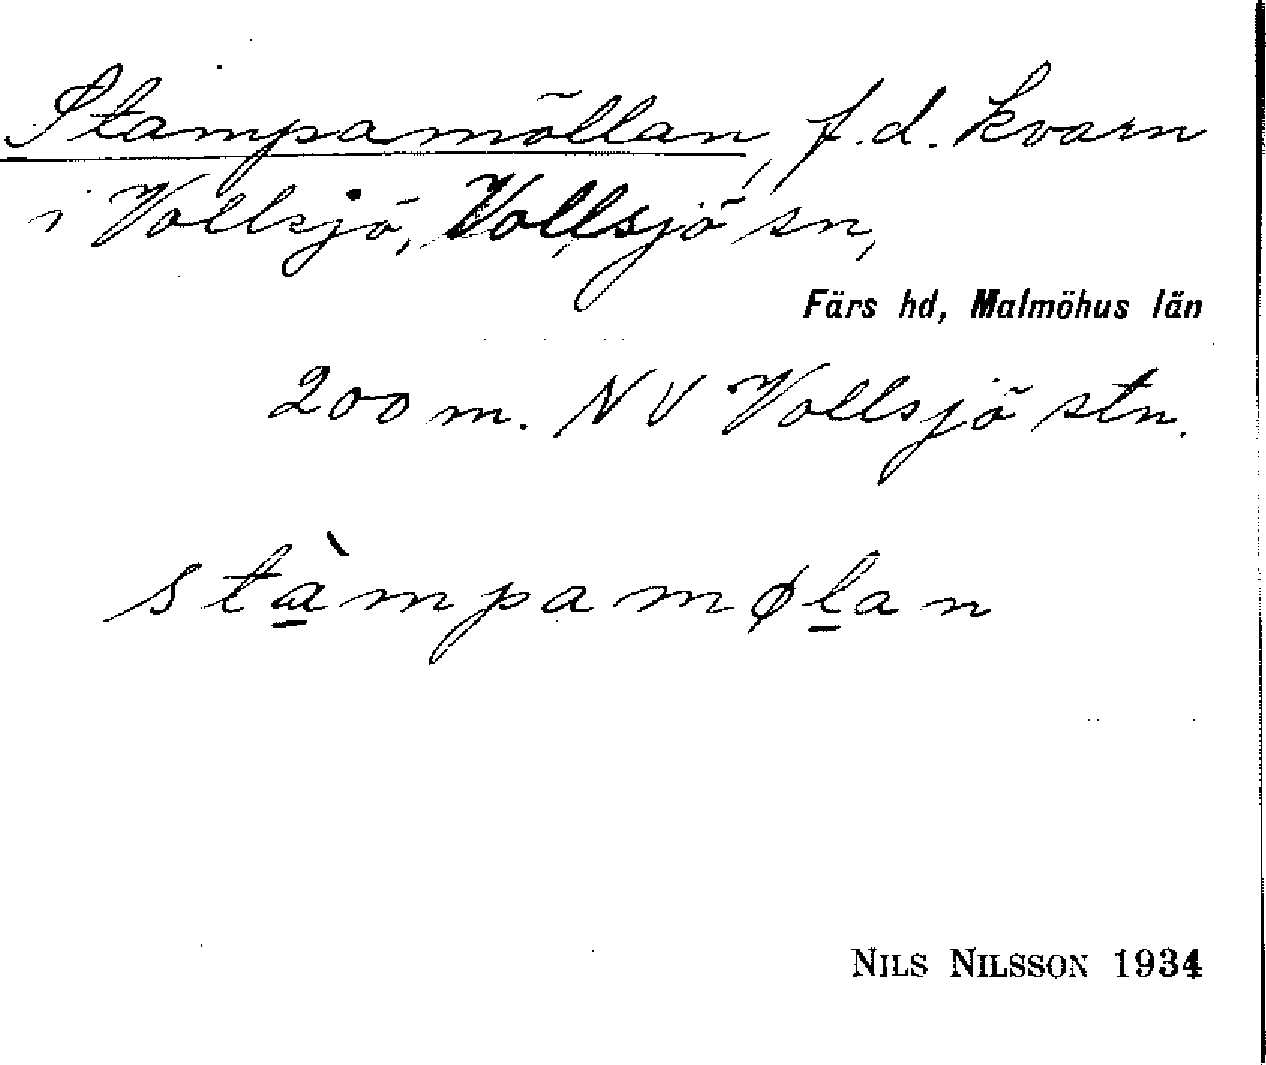 Stampamöllan, f.d. kvarn
i Vollsjö, Vollsjö sn,
Färs hd, Malmöhus län
200 m. NV Vollsjö stn.
stà̱mpamøḻan
NILS NILSSON 1934